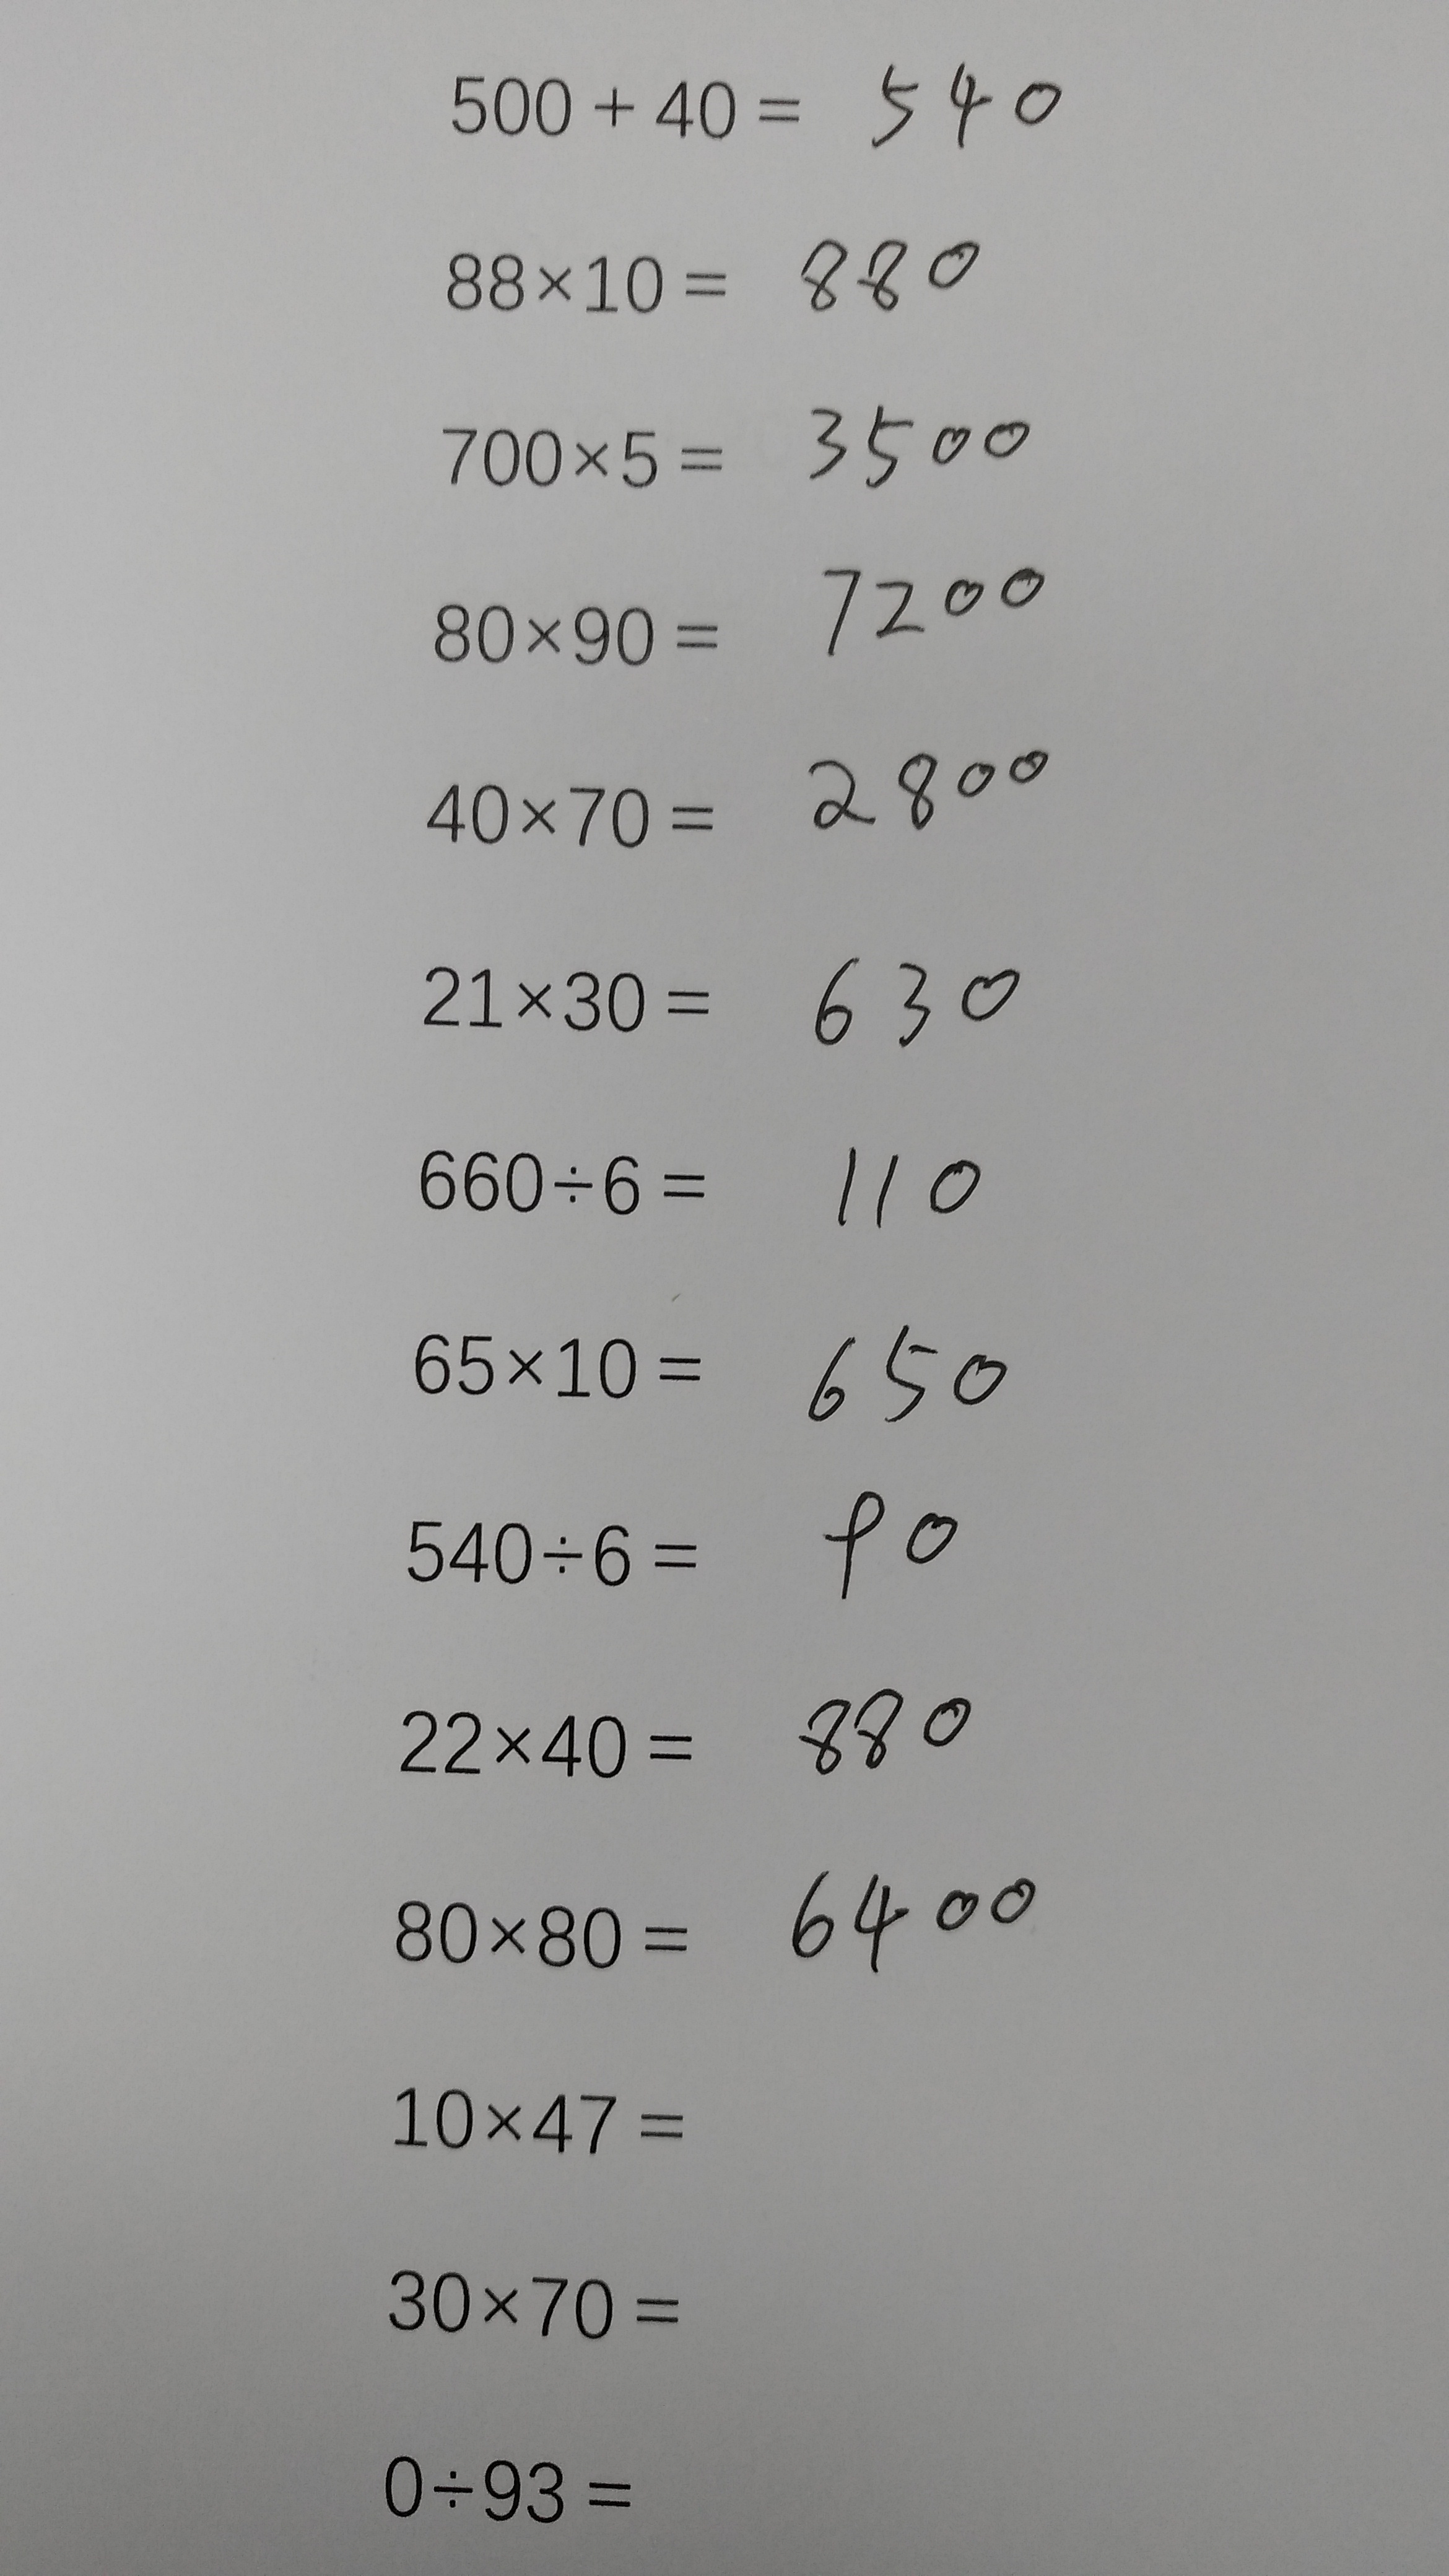 500 + 40 = 540
88×10 = 880
700×5 = 3500
80×90 = 7200
40×70 = 2800
21×30 = 630
660÷6 = 110
65×10 = 650
540÷6 = 90
22×40 = 880
80×80 = 6400
10×47 =
30×70 =
0÷93 =